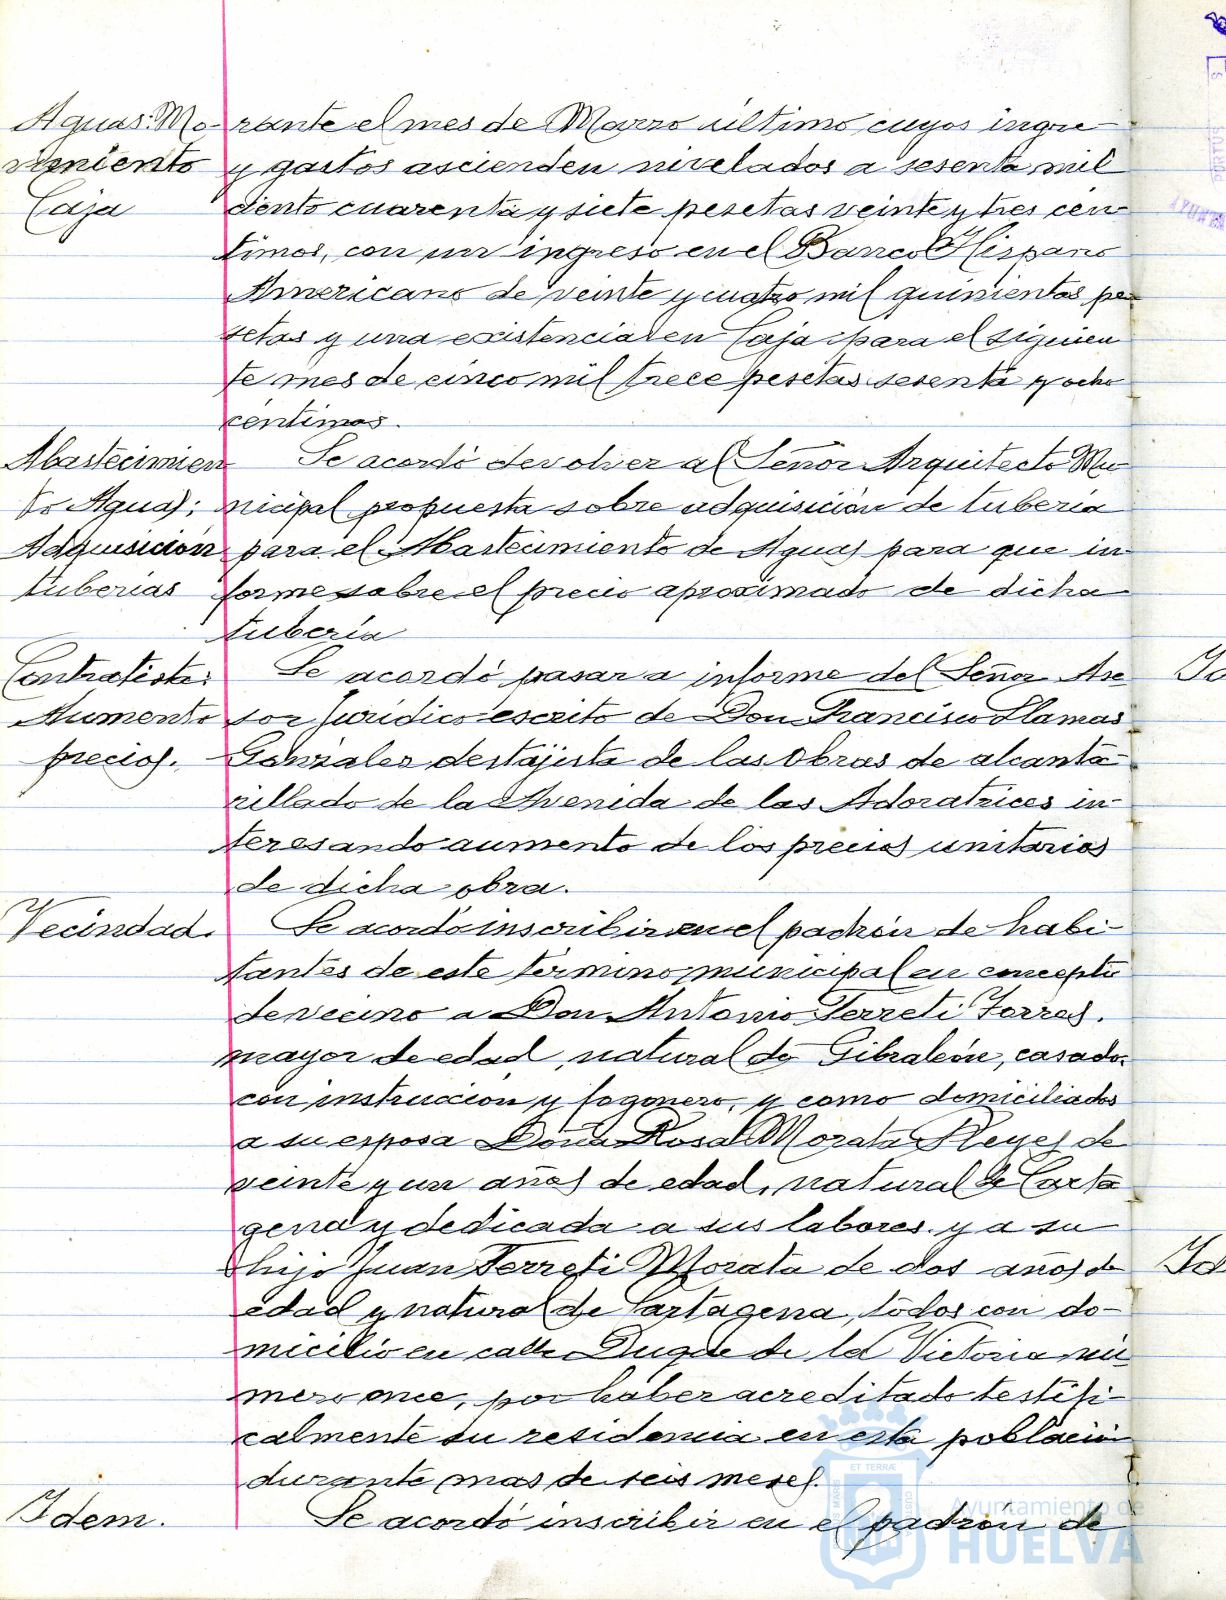 Aguas: Mo-
vimiento
Caja
rante el mes de Marzo último, cuyos ingre-
y gastos ascienden nivelados a sesenta mil
ciento cuarenta y siete pesetas veinte y tres cén-
timos, con un ingreso en el Banco Hispano
Americano de veinte y cuatro mil quinientas pe-
setas y una existencia en Caja para el siguien
te mes de cinco mil trece pesetas sesenta y ocho
céntimos.
Abastecimien
to Aguas;
Adquisición
tuberías
Se acordó devolver al Señor Arquitecto Mu-
nicipal propuesta sobre adquisición de tubería
para el Abastecimiento de Aguas para que in-
forme sobre el precio aproximado de dicha
tubería
Contratista:
Aumento
precios.
Se acordó pasar a informe del Señor Ase-
sor Jurídico escrito de Don Francisco Llamas
González destajista de las Obras de alcanta-
rillado de la Avenida de las Adoratrices in-
teresando aumento de los precios unitarios
de dicha obra.
Vecindad.
Se acordó inscribir en el padrón de habi-
tantes de este término municipal en concepto
de vecino a Don Antonio Ferreti Torres,
mayor de edad, natural de Gibraleón, casado,
con instrucción y fogonero, y como domiciliados
a su esposa Doña Rosa Morata Reyes de
veinte y un años de edad, natural de Carta
gena y dedicada a sus labores y a su
hijo Juan Ferreti Morata de dos años de
edad y natural de Cartagena, todos con do-
micilio en calle Duque de la Victoria nú-
mero once, por haber acreditado testifi-
calmente su residencia en esta población
durante mas de seis meses.
Idem.
Se acordó inscribir en el padrón de
Ayuntamiento de
HUELVA